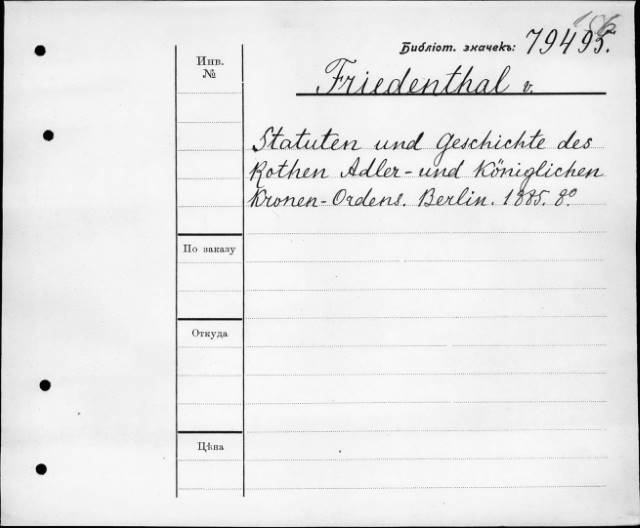 186
Библіот. значекъ: 79495.
Инв.
№
Friedenthal v.
Statuten und Geschichte des
Rothen Adler- und Königlichen
Kronen-Ordens. Berlin. 1885. 8º
По заказу
Откуда
Цѣна